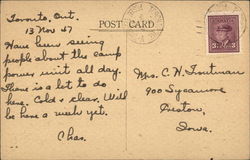 Toronto, Ont.
13 Nov 47
POST CARD
Have been seeing
people about the camp
power unit all day.
There is a lot to do
here. Cold & clear. Will
be here a week yet.
Chas.
Mrs. C. H. Troutman
900 Sycamore
Preston,
Iowa.
3 3